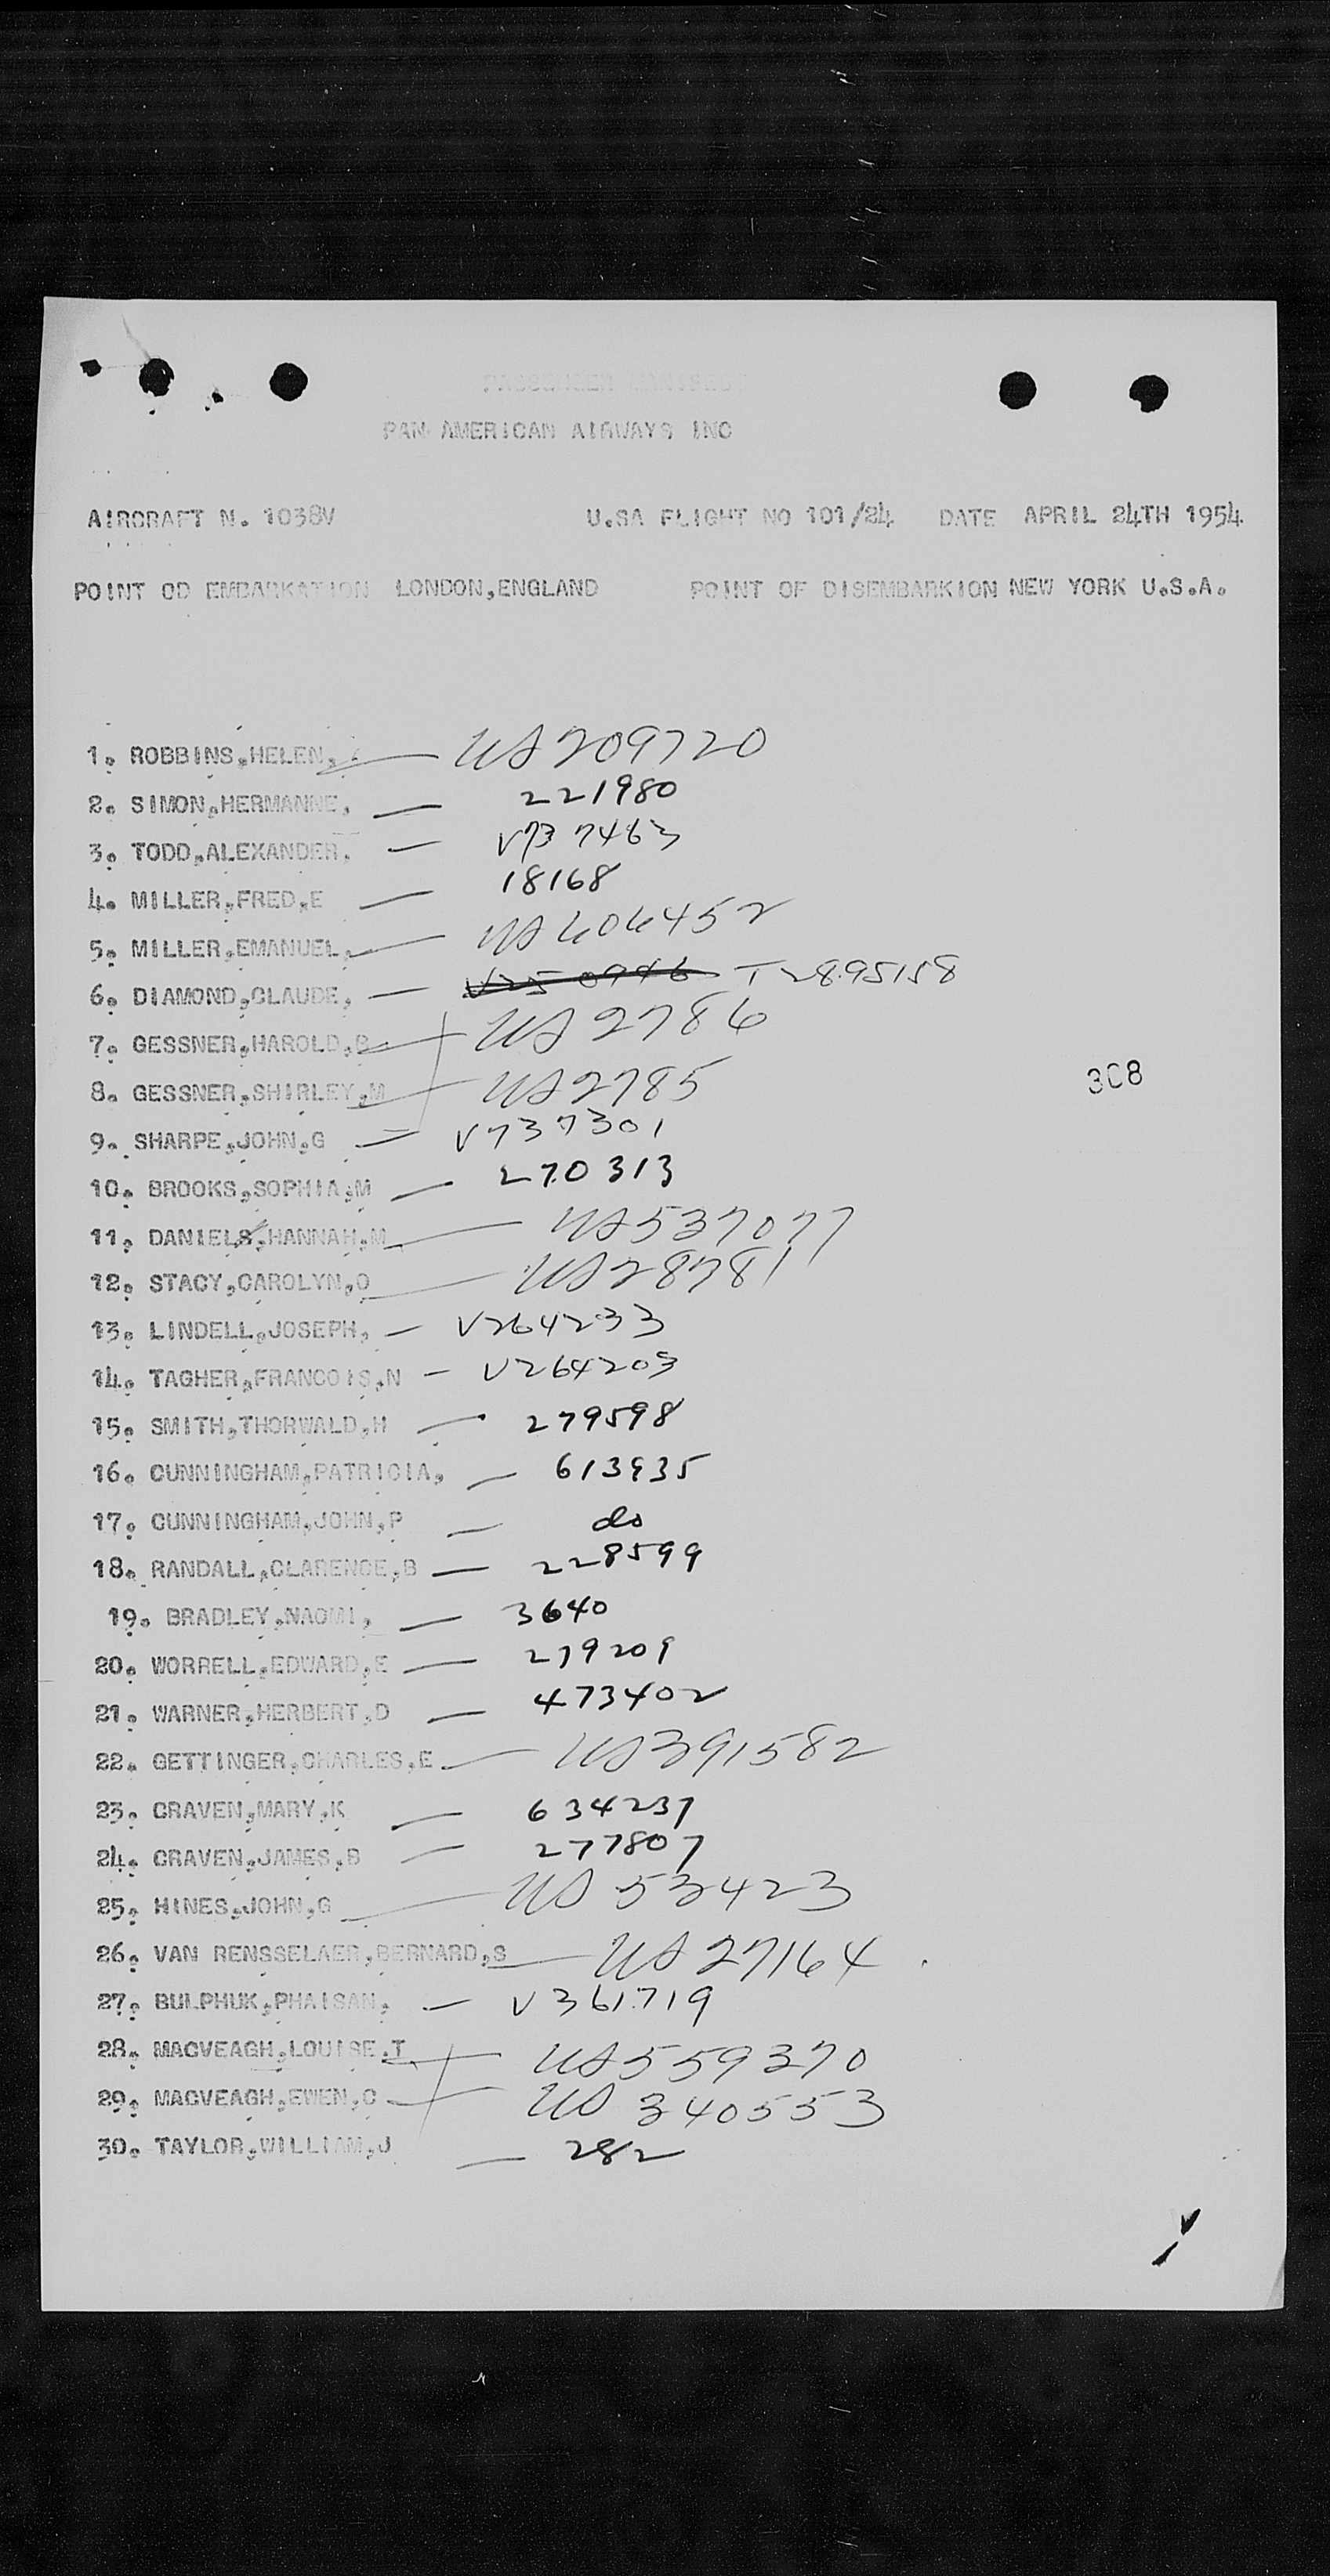 PASSENGER MANIFEST
PAN AMERICAN AIRWAYS INC
AIRCRAFT N. 1038V U.SA FLIGHT NO 101/24 DATE APRIL 24TH 1954
POINT OD EMBARKATION LONDON,ENGLAND POINT OF DISEMBARKION NEW YORK U.S.A.
1. ROBBINS,HELEN, — US 209720
2. SIMON,HERMANNE, — 221980
3. TODD,ALEXANDER, — V737463
4. MILLER,FRED,E — 18168
5. MILLER,EMANUEL, — US 606452
6. DIAMOND,CLAUDE, — V25 0946 T 2895158
7. GESSNER,HAROLD,B — US 2786
8. GESSNER,SHIRLEY,M — US 2785
308
9. SHARPE,JOHN,G — V737301
10. BROOKS,SOPHIA,M — 270313
11. DANIELS,HANNAH,M — US 537077
12. STACY,CAROLYN,O — US 28781
13. LINDELL,JOSEPH, — V264233
14. TAGHER,FRANCOIS,N — V264203
15. SMITH,THORWALD,H — 279598
16. CUNNINGHAM,PATRICIA, — 613935
17. CUNNINGHAM,JOHN,P — do
18. RANDALL,CLARENCE,B — 228599
19. BRADLEY,NAOMI, — 3640
20. WORRELL,EDWARD,E — 279209
21. WARNER,HERBERT,D — 473402
22. GETTINGER,CHARLES,E — US 391582
23. CRAVEN,MARY,K — 634237
24. CRAVEN,JAMES,B — 277807
25. HINES,JOHN,G — US 53423
26. VAN RENSSELAER,BERNARD,S — US 27164
27. BULPHUK,PHAISAN, — V361719
28. MACVEAGH,LOUISE.T — US 559370
29. MACVEAGH,EWEN,C — US 340553
30. TAYLOR,WILLIAM,J — 282